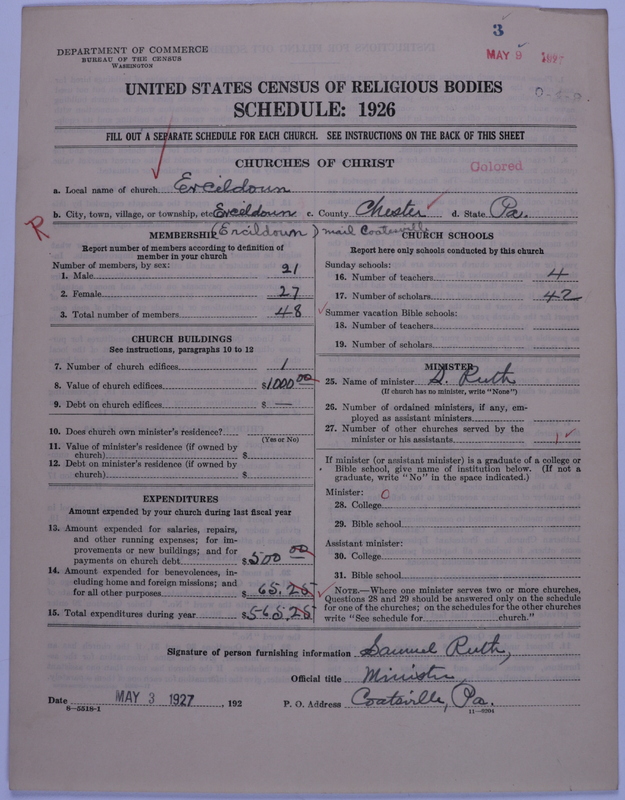 3
MAY 9 1927
DEPARTMENT OF COMMERCE
BUREAU OF THE CENSUS
WASHINGTON
UNITED STATES CENSUS OF RELIGIOUS BODIES
SCHEDULE: 1926
FILL OUT A SEPARATE SCHEDULE FOR EACH CHURCH. SEE INSTRUCTIONS ON THE BACK OF THIS SHEET
CHURCHES OF CHRIST
Colored
a. Local name of church Ercildoun
b. City, town, village, or township, etc Ercildoun c. County Chester d. State Pa.
R
Ercildoun) mail Coatesville
MEMBERSHIP
Report number of members according to definition of
member in your church
Number of members, by sex:
1. Male 21
2. Female 27
3. Total number of members 48
CHURCH BUILDINGS
See instructions, paragraphs 10 to 12
7. Number of church edifices 1
8. Value of church edifices $1000 00
9. Debt on church edifices $ —
10. Does church own minister's residence?
(Yes or No)
11. Value of minister's residence (if owned by
church) $
12. Debt on minister's residence (if owned by
church) $
EXPENDITURES
Amount expended by your church during last fiscal year
13. Amount expended for salaries, repairs,
and other running expenses; for im-
provements or new buildings; and for
payments on church debt $500 00
14. Amount expended for benevolences, in-
cluding home and foreign missions; and
for all other purposes $ 65.25
15. Total expenditures during year $565.25
CHURCH SCHOOLS
Report here only schools conducted by this church
Sunday schools:
16. Number of teachers 4
17. Number of scholars 42
Summer vacation Bible schools:
18. Number of teachers
19. Number of scholars
MINISTER
25. Name of minister S. Ruth
(If church has no minister, write "None")
26. Number of ordained ministers, if any, em-
ployed as assistant ministers
27. Number of other churches served by the
minister or his assistants 1
If minister (or assistant minister) is a graduate of a college or
Bible school, give name of institution below. (If not a
graduate, write "No" in the space indicated.)
Minister: 0
28. College
29. Bible school
Assistant minister:
30. College
31. Bible school
NOTE.—Where one minister serves two or more churches,
Questions 28 and 29 should be answered only on the schedule
for one of the churches; on the schedules for the other churches
write "See schedule for church."
Signature of person furnishing information Samuel Ruth,
Official title Minister
Date MAY 3 1927, 192 P. O. Address Coatsville, Pa.
8—5518-1 11—8204